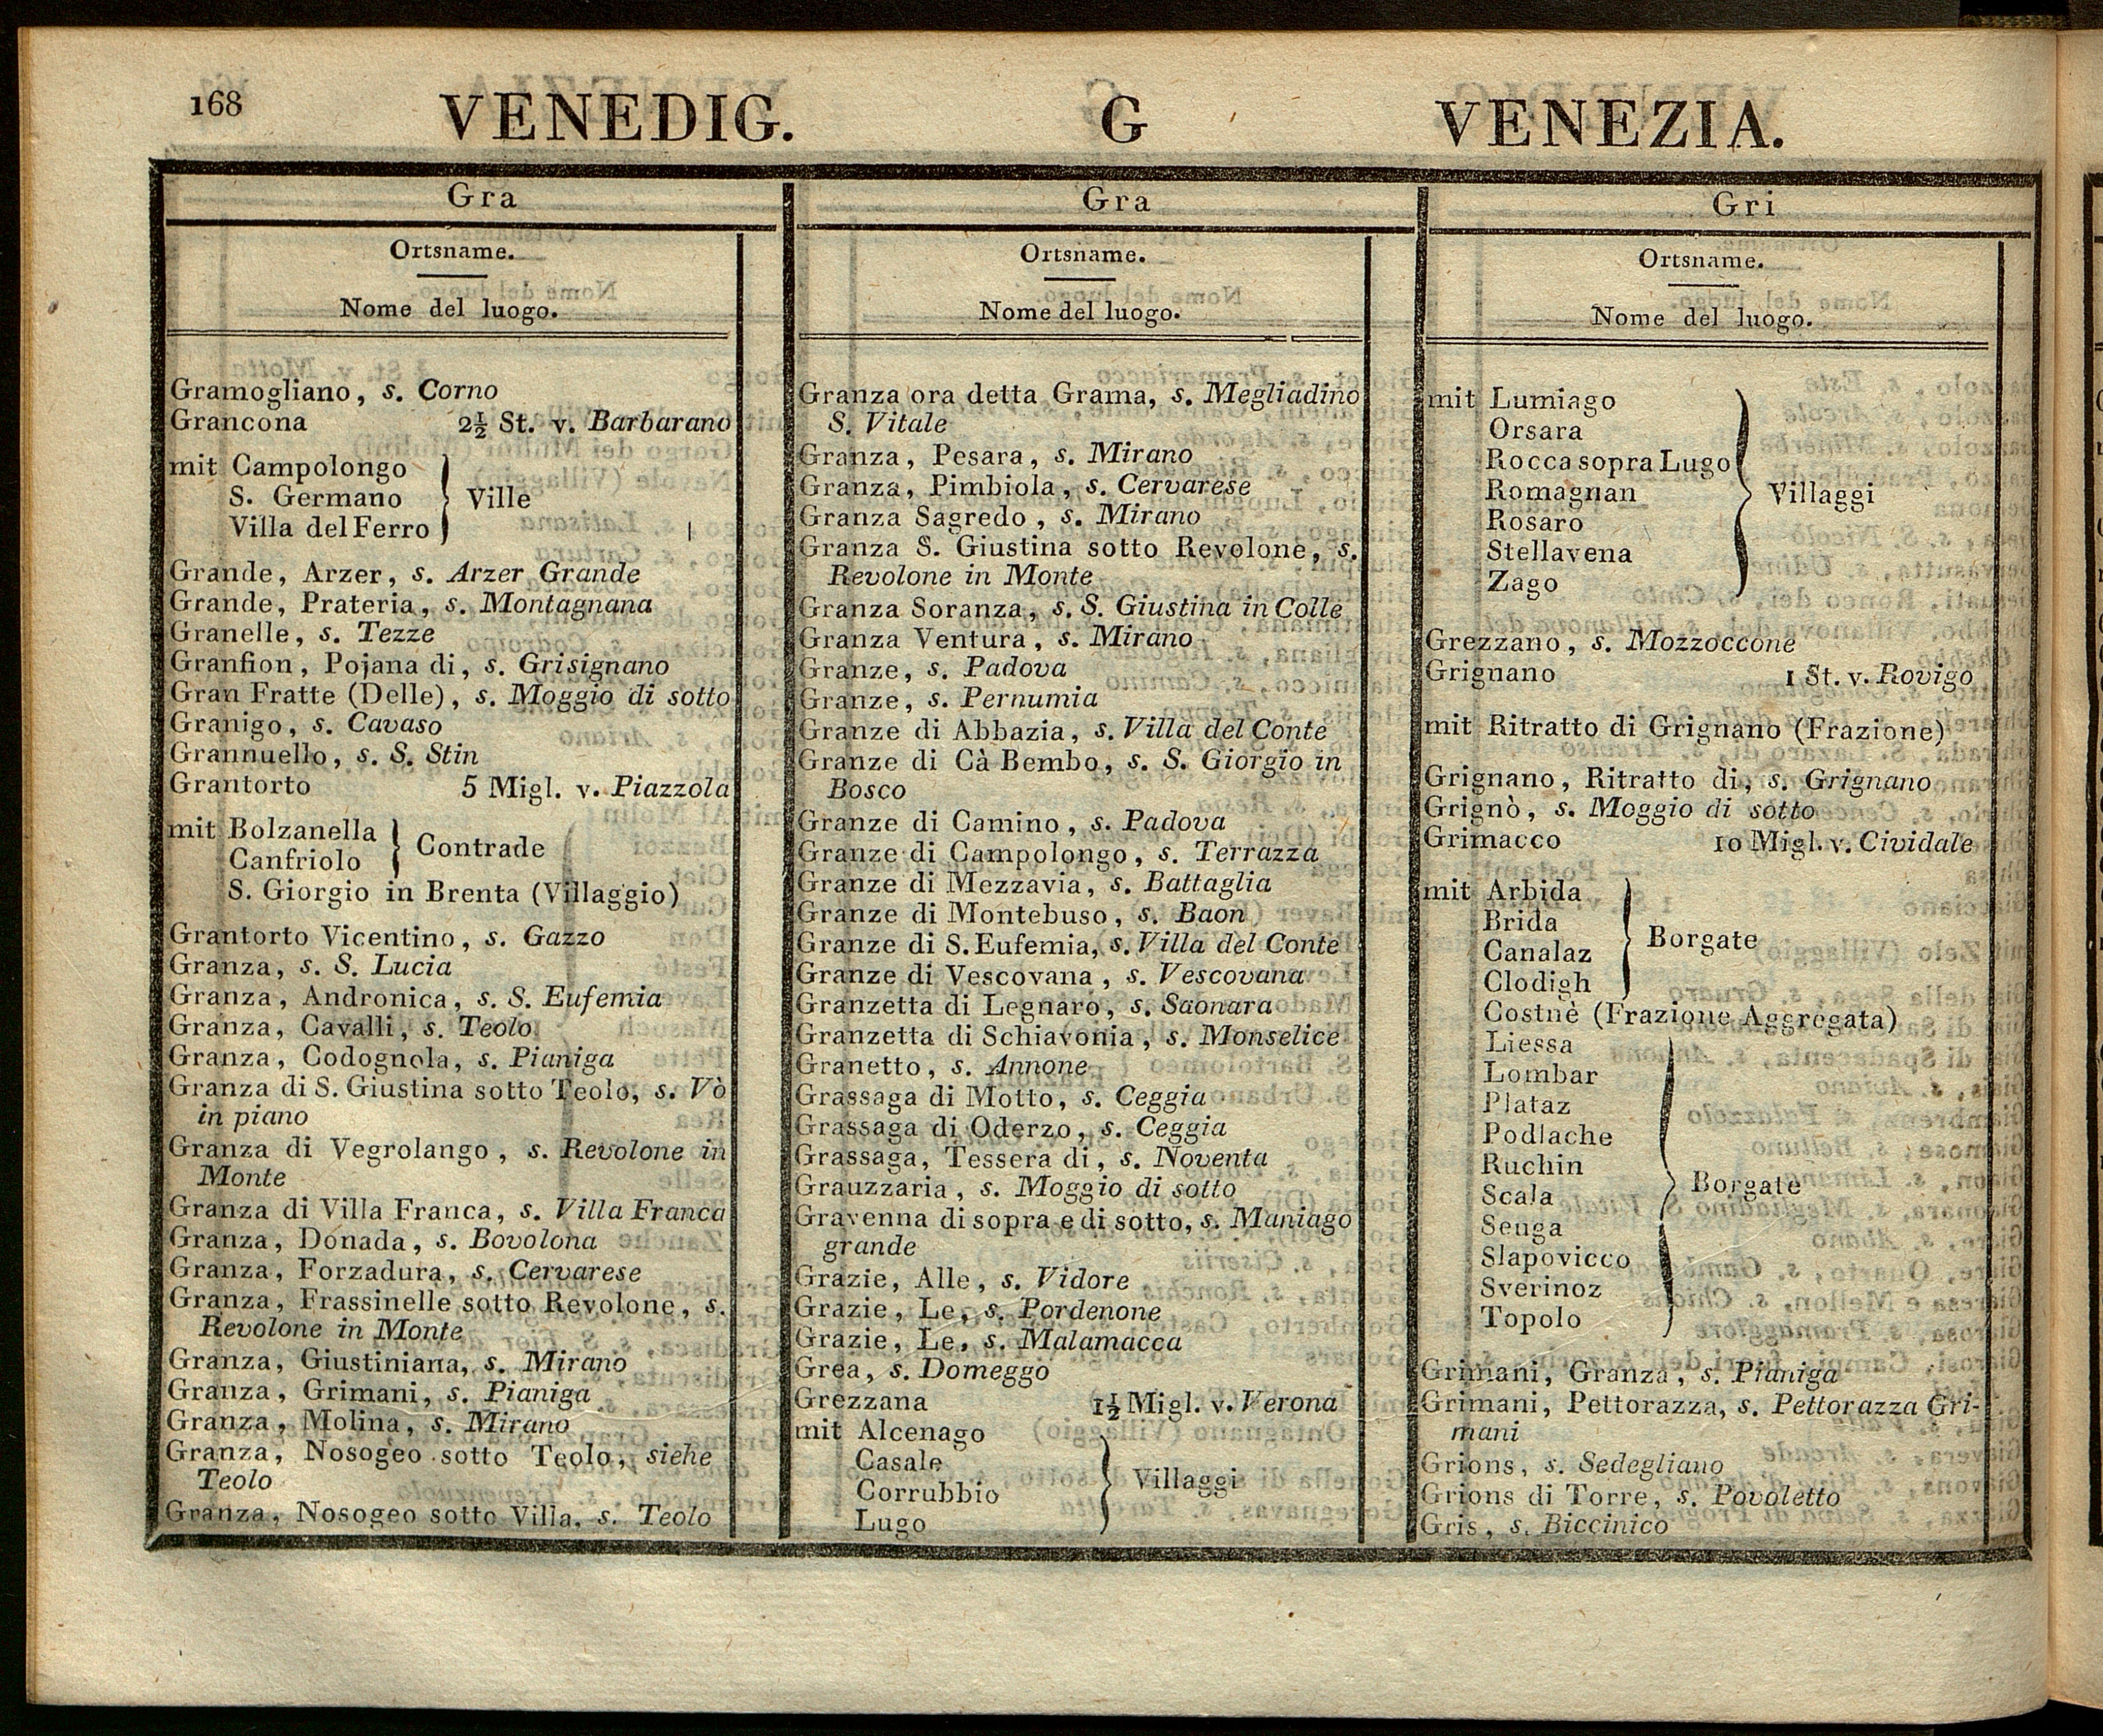 168
VENEDIG.
G
VENEZIA.
Gra
Ortsname.
Nome del luogo.
Gramogliano, s. Corno
Grancona 2½ St. v. Barbarano
mit Campolongo
S. Germano
Villa del Ferro
Ville
Grande, Arzer, s. Arzer Grande
Grande, Prateria, s. Montagnana
Granelle, s. Tezze
Granfion, Pojana di, s. Grisignano
Gran Fratte (Delle), s. Moggio di sotto
Granigo, s. Cavaso
Grannuello, s. S. Stin
Grantorto 5 Migl. v. Piazzola
mit Bolzanella
Canfriolo
Contrade
S. Giorgio in Brenta (Villaggio)
Grantorto Vicentino, s. Gazzo
Granza, s. S. Lucia
Granza, Andronica, s. S. Eufemia
Granza, Cavalli, s. Teolo
Granza, Codognola, s. Pianiga
Granza di S. Giustina sotto Teolo, s. Vò
in piano
Granza di Vegrolango, s. Revolone in
Monte
Granza di Villa Franca, s. Villa Franca
Granza, Donada, s. Bovolona
Granza, Forzadura, s. Cervarese
Granza, Frassinelle sotto Revolone, s.
Revolone in Monte
Granza, Giustiniana, s. Mirano
Granza, Grimani, s. Pianiga
Granza, Molina, s. Mirano
Granza, Nosogeo sotto Teolo, siehe
Teolo
Granza, Nosogeo sotto Villa, s. Teolo
Gra
Ortsname.
Nome del luogo.
Granza ora detta Grama, s. Megliadino
S. Vitale
Granza, Pesara, s. Mirano
Granza, Pimbiola, s. Cervarese
Granza Sagredo, s. Mirano
Granza S. Giustina sotto Revolone, s.
Revolone in Monte
Granza Soranza, s. S. Giustina in Colle
Granza Ventura, s. Mirano
Granze, s. Padova
Granze, s. Pernumia
Granze di Abbazia, s. Villa del Conte
Granze di Cà Bembo, s. S. Giorgio in
Bosco
Granze di Camino, s. Padova
Granze di Campolongo, s. Terrazza
Granze di Mezzavia, s. Battaglia
Granze di Montebuso, s. Baon
Granze di S. Eufemia, s. Villa del Conte
Granze di Vescovana, s. Vescovana
Granzetta di Legnaro, s. Saonara
Granzetta di Schiavonia, s. Monselice
Granetto, s. Annone
Grassaga di Motto, s. Ceggia
Grassaga di Oderzo, s. Ceggia
Grassaga, Tessera di, s. Noventa
Grauzzaria, s. Moggio di sotto
Gravenna di sopra e di sotto, s. Maniago
grande
Grazie, Alle, s. Vidore
Grazie, Le, s. Pordenone
Grazie, Le, s. Malamacca
Grea, s. Domeggo
Grezzana 1½ Migl. v. Verona
mit Alcenago
Casale
Corrubbio
Lugo
Villaggi
Gri
Ortsname.
Nome del luogo.
mit Lumiago
Orsara
Rocca sopra Lugo
Romagnan
Rosaro
Stellavena
Zago
Villaggi
Grezzano, s. Mozzoccone
Grignano 1 St. v. Rovigo
mit Ritratto di Grignano (Frazione)
Grignano, Ritratto di, s. Grignano
Grignò, s. Moggio di sotto
Grimacco 10 Migl. v. Cividale
mit Arbida
Brida
Canalaz
Clodigh
Borgate
Costnè (Frazione Aggregata)
Liessa
Lombar
Plataz
Podlache
Ruchin
Scala
Seuga
Slapovicco
Sverinoz
Topolo
Borgate
Grimani, Granza, s. Pianiga
Grimani, Pettorazza, s. Pettorazza Gri-
mani
Grions, s. Sedegliano
Grions di Torre, s. Povoletto
Gris, s. Biccinico